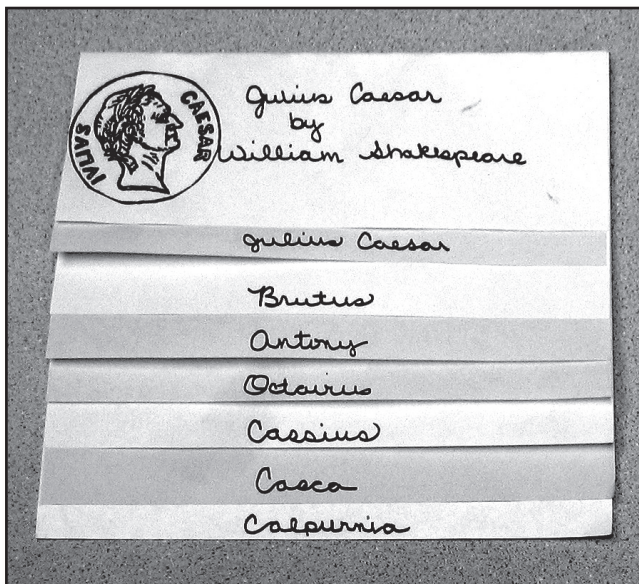 IVLIVS CAESAR
Julius Caesar
by
William Shakespeare
Julius Caesar
Brutus
Antony
Octavius
Cassius
Casca
Calpurnia